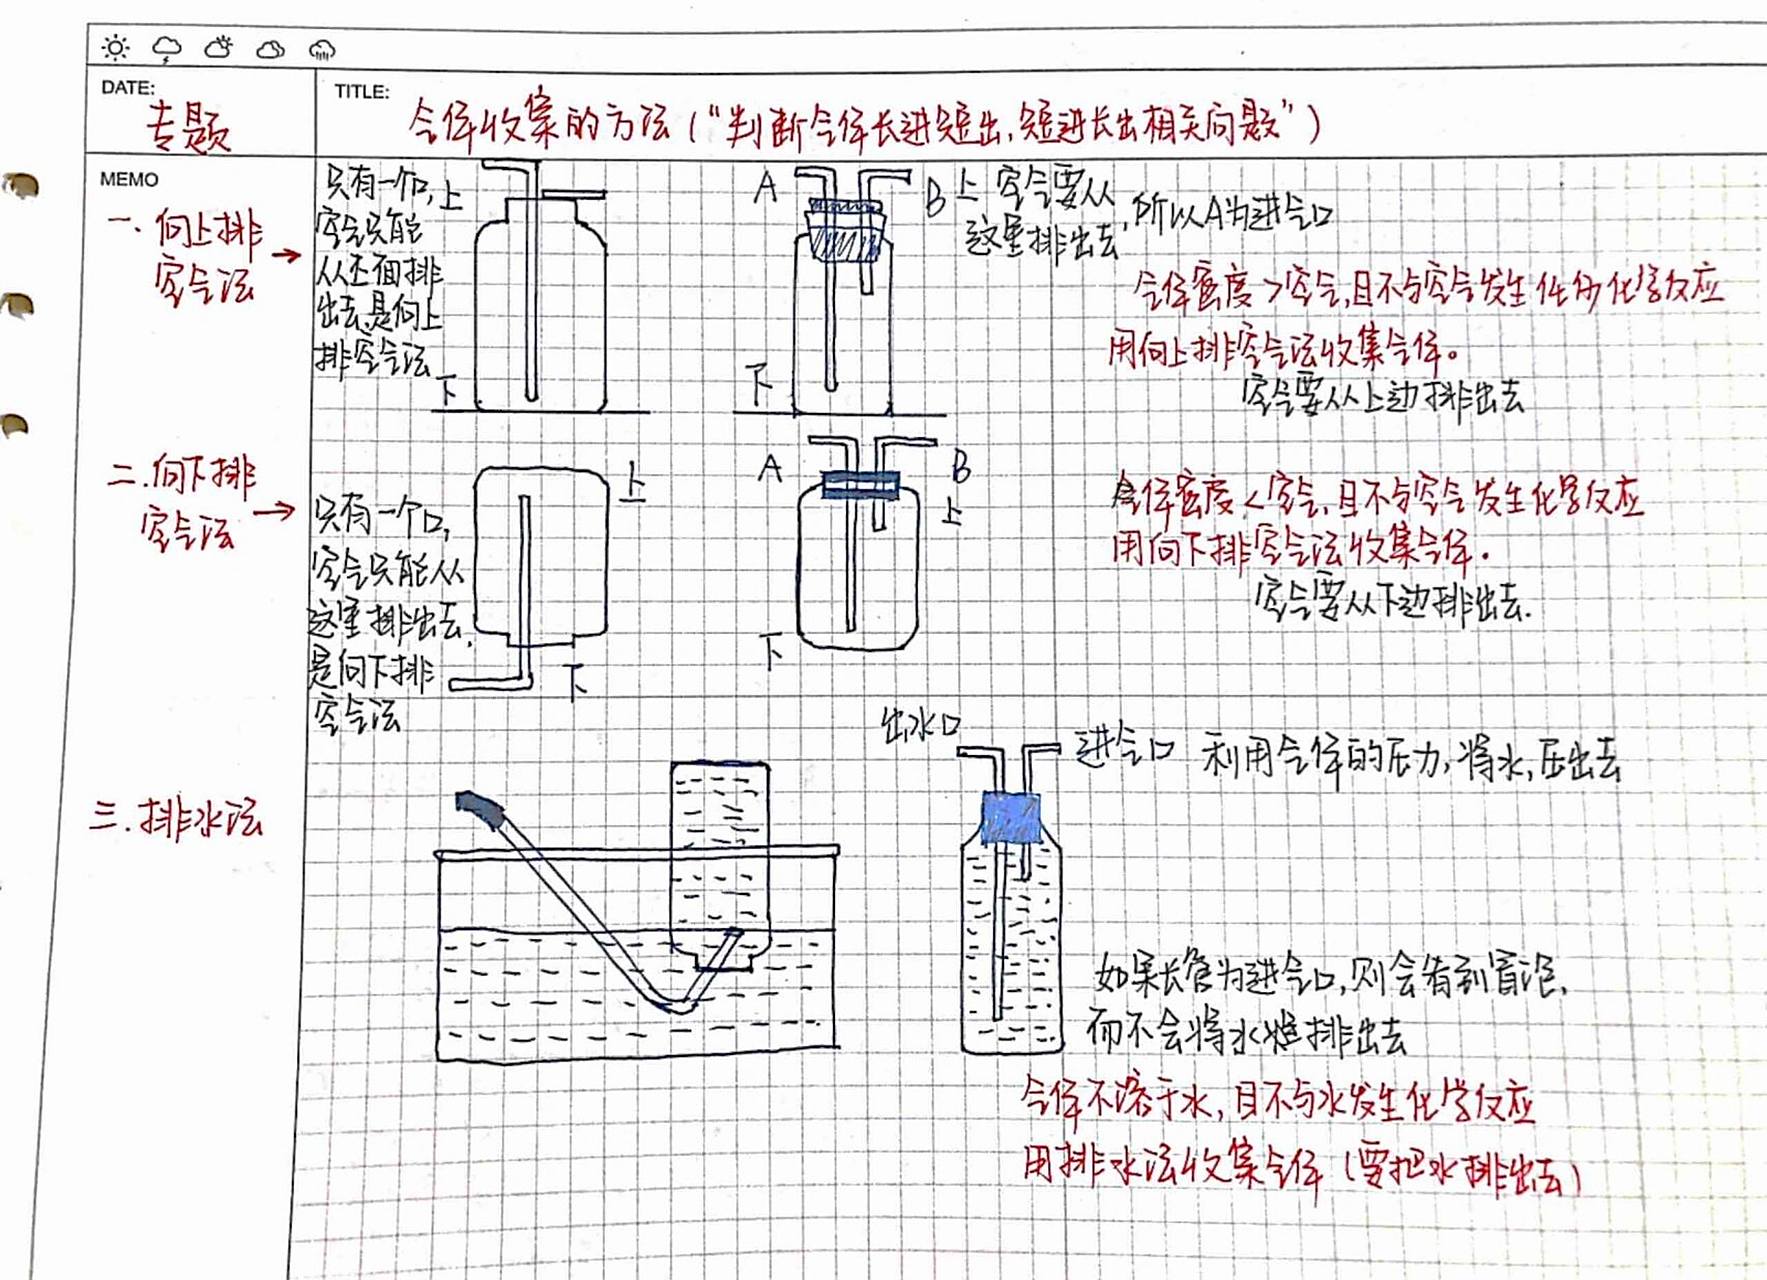 DATE:
专题
TITLE:
气体收集的方法（“判断气体长进短出,短进长出相关问题”）
MEMO
一.向上排
空气法
只有一个口,
空气只能
从上面排
出去,是向上
排空气法
上
下
A
B
上
下
空气要从
这里排出去,所以A为进气口
气体密度>空气,且不与空气发生任何化学反应
用向上排空气法收集气体。
空气要从上边排出去
二.向下排
空气法
只有一个口,
空气只能从
这里排出去,
是向下排
空气法
上
下
A
B
上
下
气体密度<空气,且不与空气发生化学反应
用向下排空气法收集气体.
空气要从下边排出去.
三.排水法
出水口
进气口
利用气体的压力,将水,压出去
如果长管为进气口,则会看到冒泡,
而不会将水排出去
气体不溶于水,且不与水发生化学反应
用排水法收集气体（要把水排出去）